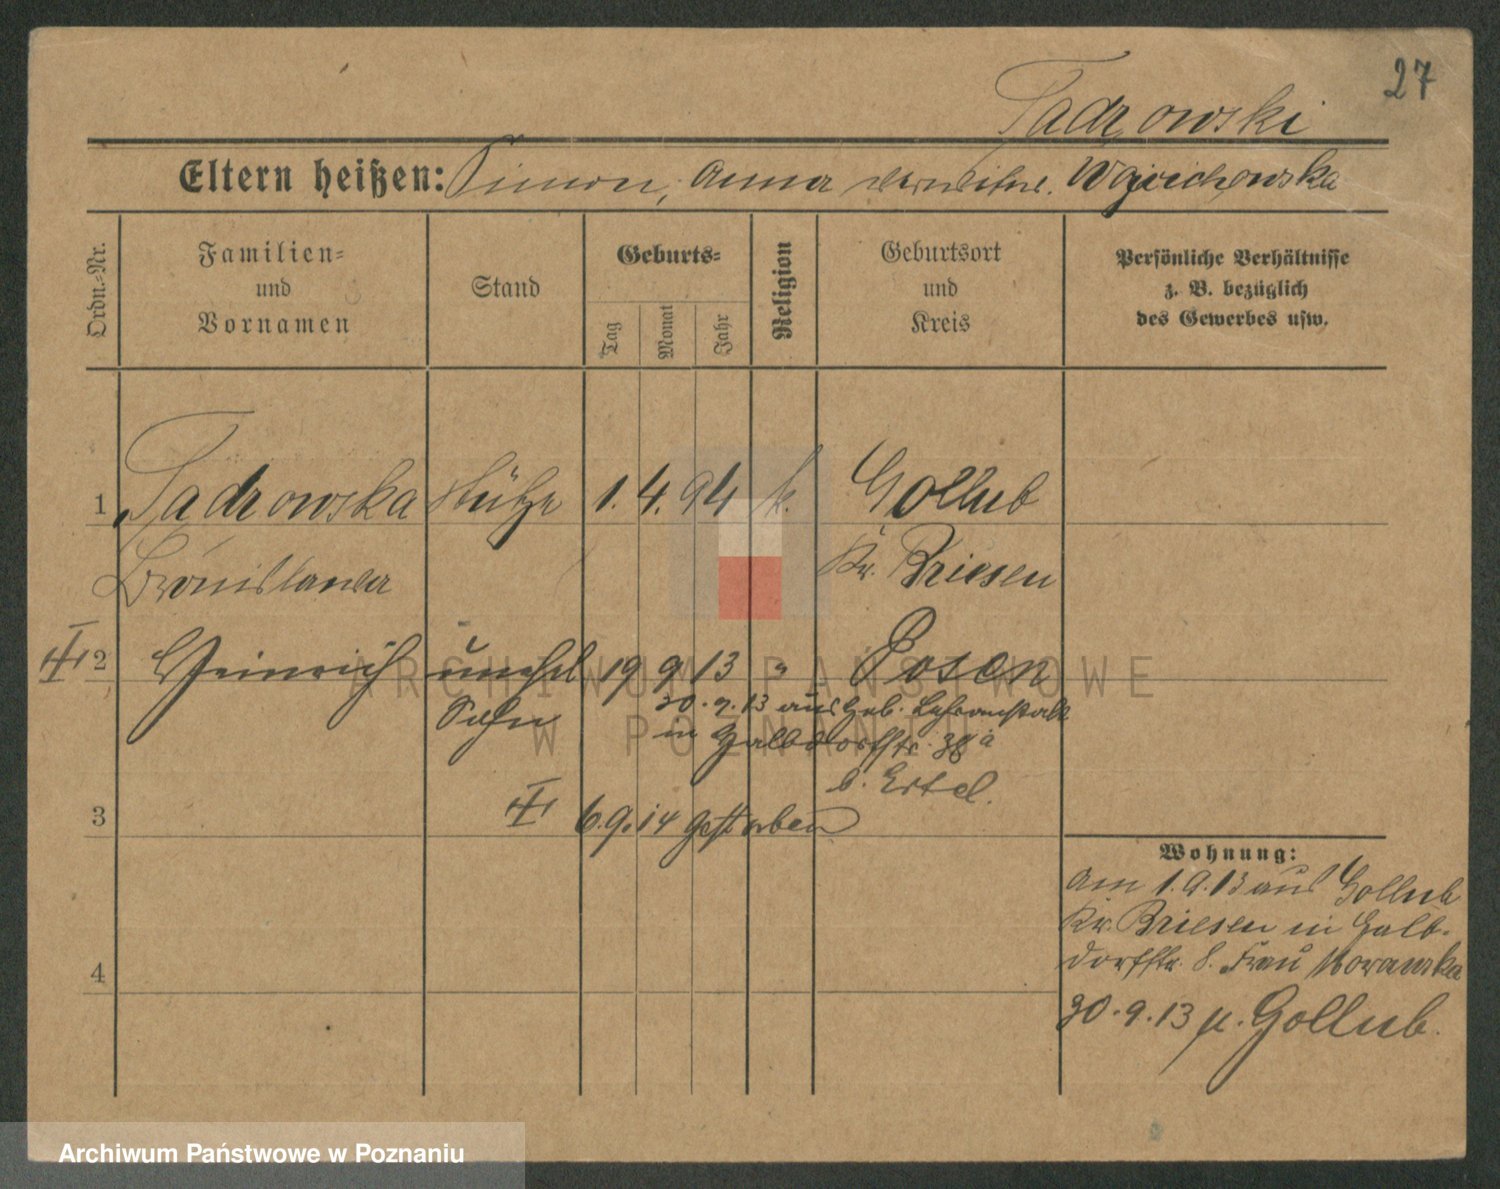 27
Tadrowski
Eltern heißen: Simon, Anna verwitw. Wojciechowska
Ordn.-Nr.
Familien-
und
Vornamen
Stand
Geburts-
Tag
Monat
Jahr
Religion
Geburtsort
und
Kreis
Persönliche Verhältnisse
z. B. bezüglich
des Gewerbes usw.
1 Tadrowska Stütze 1. 4. 94 k. Gollub
Bronislawa Kr. Briesen
III 2 Heinrich unehel 19 9 13 " Posen
Sohn 30.9.13 aus Heb. Lehranstalt
in Halbdorfstr. 38a
b. Ertel.
3 III 6.9.14 gestorben
4
Wohnung:
am 1.9.13 aus Gollub
Kr. Briesen in Halb-
dorfstr. 8. Frau Morawska
30.9.13 n. Gollub.
ARCHIWUM PAŃSTWOWE
W POZNANIU
Archiwum Państwowe w Poznaniu